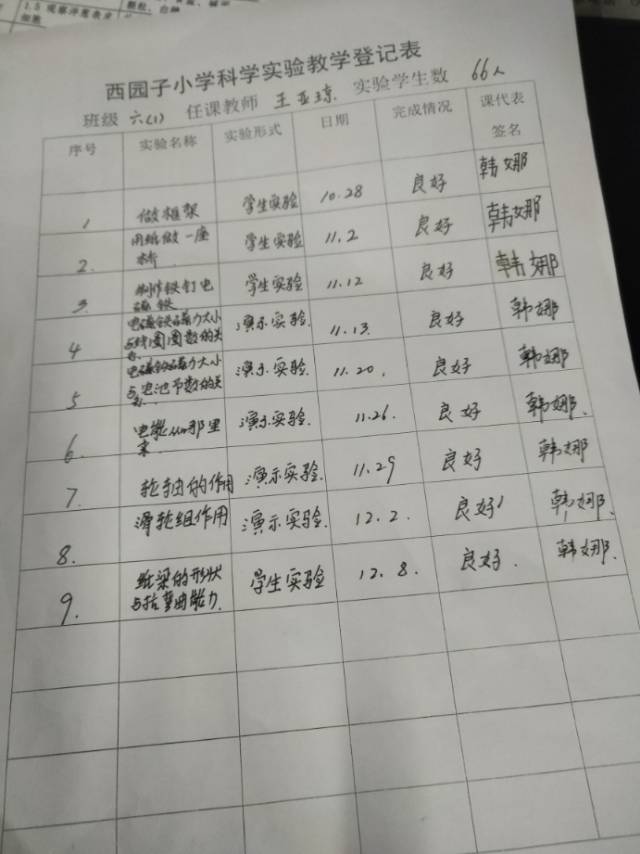 1.5 观察洋葱表皮
细胞
西园子小学科学实验教学登记表
班级 六(1) 任课教师 王亚琼 实验学生数 66人
序号 实验名称 实验形式 日期 完成情况 课代表
签名
1 做框架 学生实验 10.28 良好 韩娜
2. 用纸做一座
桥 学生实验 11.2 良好 韩娜
3 制作铁钉电
磁铁 学生实验 11.12 良好 韩娜
4 电磁铁磁力大小
与线圈圈数的关
演示实验. 11.13. 良好 韩娜
5 电磁铁磁力大小
与电池节数的关
演示实验. 11.20. 良好 韩娜
6. 电能从哪里
来. 演示实验. 11.26. 良好 韩娜.
7. 轮轴的作用 演示实验. 11.29 良好 韩娜
8. 滑轮组作用 演示实验. 12.2. 良好 韩娜.
9. 纸梁的形状
与抗弯曲能力. 学生实验 12.8. 良好. 韩娜.